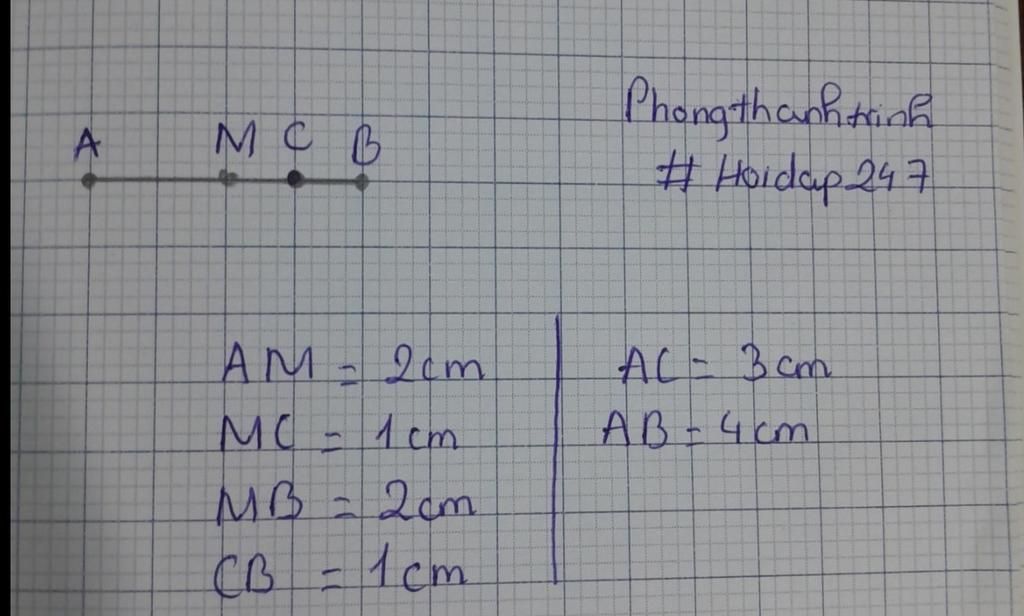 Phongthanhtrinh
# Hoidap247
A M C B
AM = 2cm
MC = 1cm
MB = 2cm
CB = 1cm
AC = 3cm
AB = 4cm